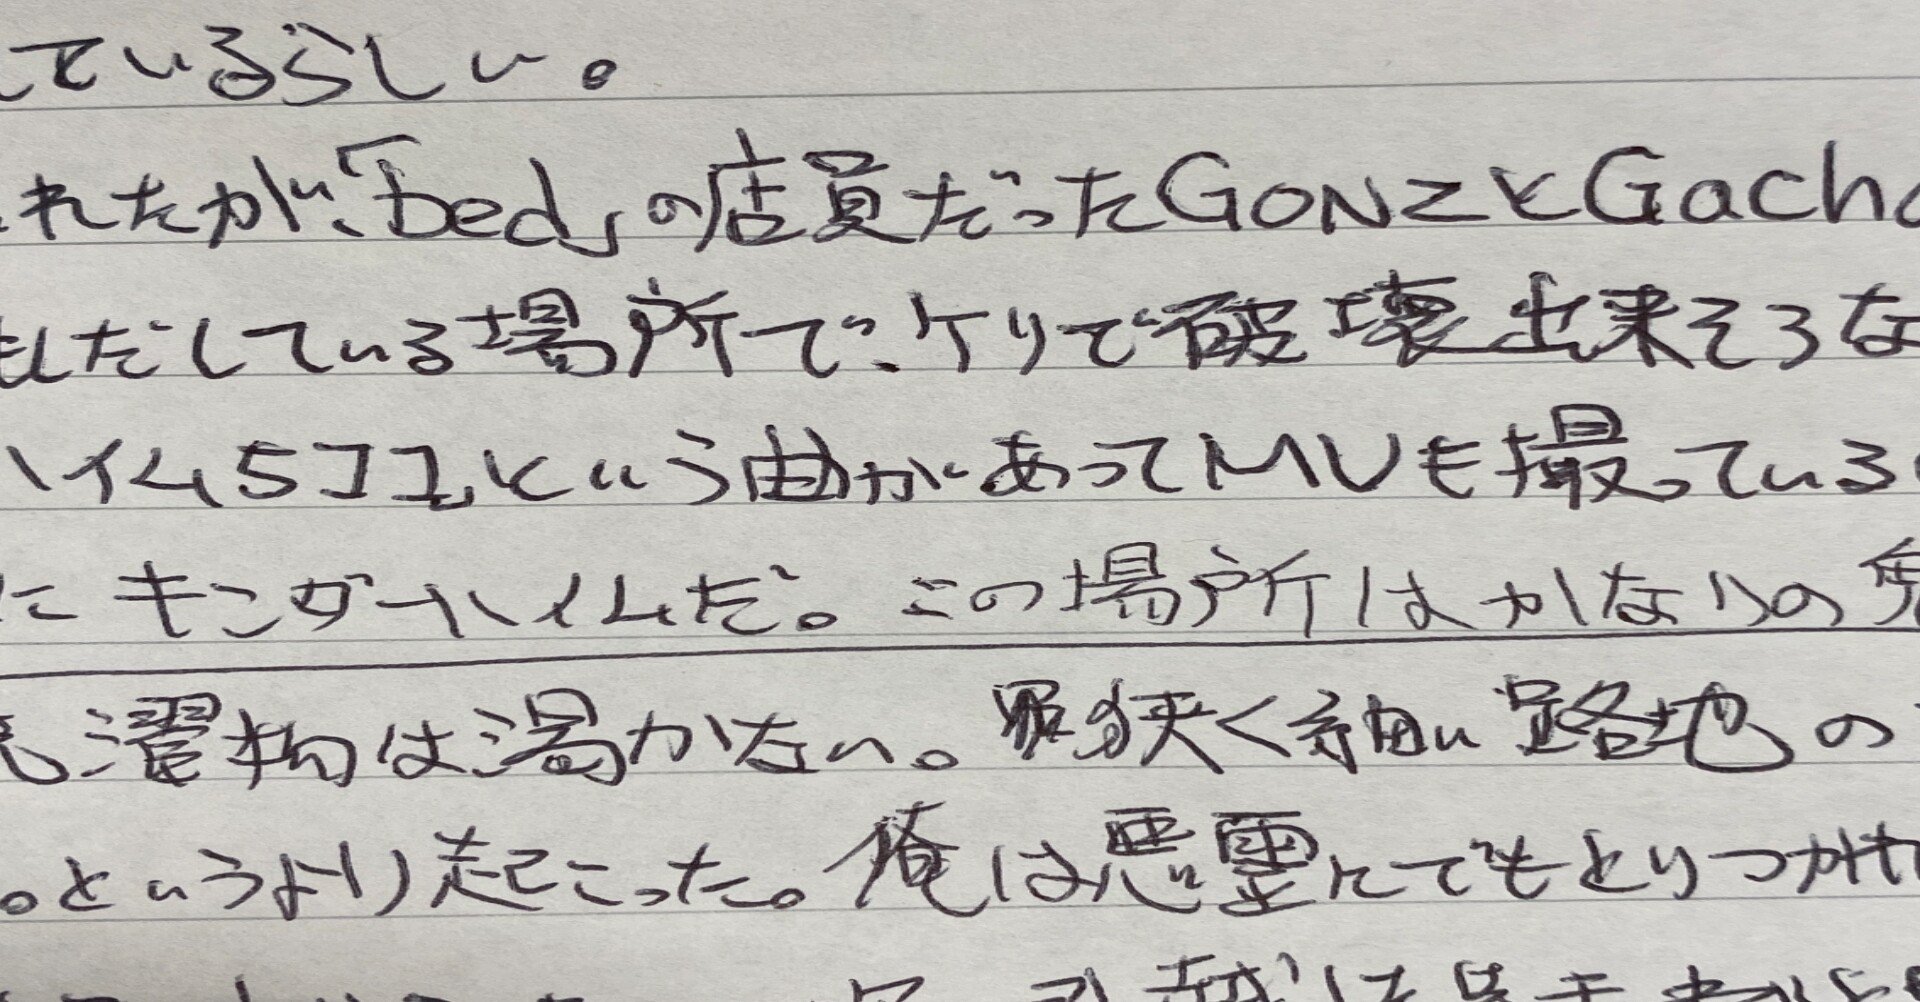 ているらしい。
れたが、「bed」の店員だったGONZとGach
だしている場所で、ケリで破壊出来そうな
ハイム5ココ」という曲があってMVも撮っている
にキンダーハイムだ。この場所はかなりの
濯物は渇かない。狭く細い路地の
。というより起こった。俺は悪霊にでもとりつかれ